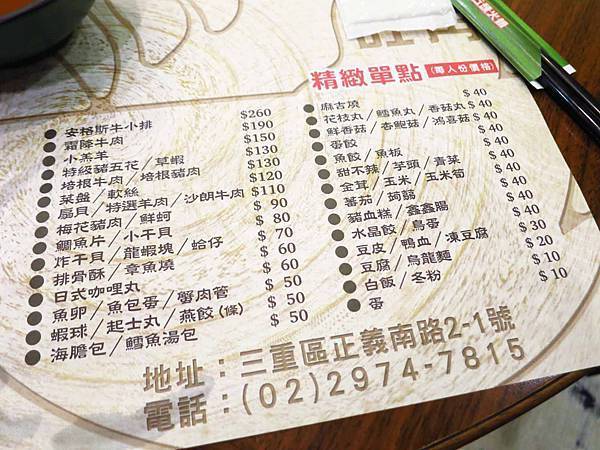 精緻單點 (每人份價格)
安格斯牛小排 $260
霜降牛肉 $190
小羔羊 $150
特級豬五花／草蝦 $130
培根牛肉／培根豬肉 $130
菜盤／軟絲 $120
扇貝／特選羊肉／沙朗牛肉 $110
梅花豬肉／鮮蚵 $ 90
鯛魚片／小干貝 $ 80
炸干貝／龍蝦塊／蛤仔 $ 70
排骨酥／章魚燒 $ 60
日式咖哩丸 $ 60
魚卵／魚包蛋／蟹肉管 $ 50
蝦球／起士丸／燕餃(條) $ 50
海膽包／鱈魚湯包 $ 50
麻古燒 $ 40
花枝丸／鱈魚丸／香菇丸 $ 40
鮮香菇／杏鮑菇／鴻喜菇 $ 40
蛋餃 $ 40
魚餃／魚板 $ 40
甜不辣／芋頭／青菜 $ 40
金茸／玉米／玉米筍 $ 40
番茄／蒟蒻 $ 40
豬血糕／鑫鑫腸 $ 40
水晶餃／鳥蛋 $ 40
豆皮／鴨血／凍豆腐 $ 30
豆腐／烏龍麵 $ 20
白飯／冬粉 $ 10
蛋 $ 10
地址：三重區正義南路2-1號
電話：(02)2974-7815